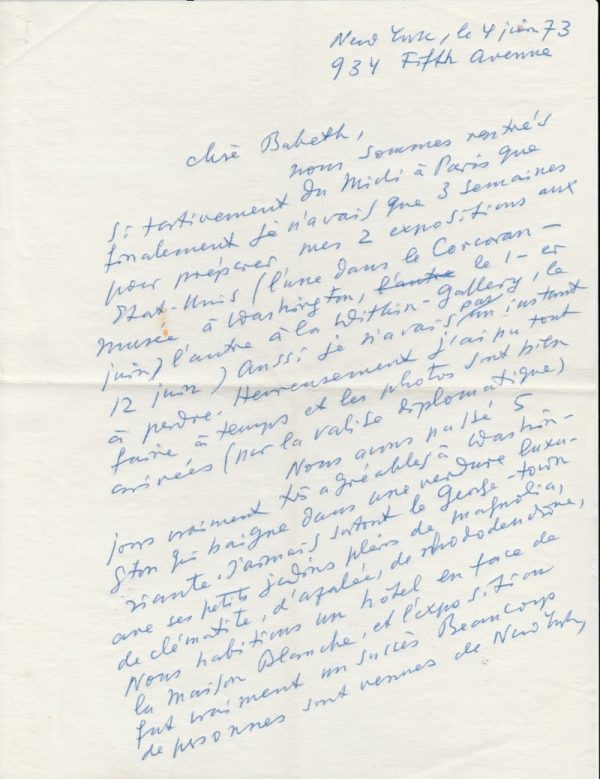 New York, le 4 juin 73
934 Fifth Avenue
chère Babeth,
nous sommes rentrés
si tardivement du Midi à Paris que
finalement je n'avais que 3 semaines
pour préparer mes 2 expositions aux
Etat-Unis (l'une dans le Corcoran-
musée à Washington, l'autre le 1-er
juin) l'autre à la Witkin-Gallery, le
12 juin) Aussi je n'avais pas un instant
à perdre. Heureusement j'ai pu tout
faire à temps et les photos sont bien
arrivées (par la valise diplomatique)
Nous avons passé 5
jours vraiment très agréables à Washin-
gton qui baigne dans une verdure luxu-
riante. J'aimais surtout le George-town
avec ses petits jardins pleins de magnolia,
de clématite, d'azalée, de rhododendron,
Nous habitions un hôtel en face de
la Maison Blanche, et l'exposition
fut vraiment un succès Beaucoup
de personnes sont venues de New York,